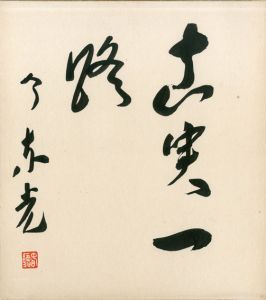 真実一
路
今東光